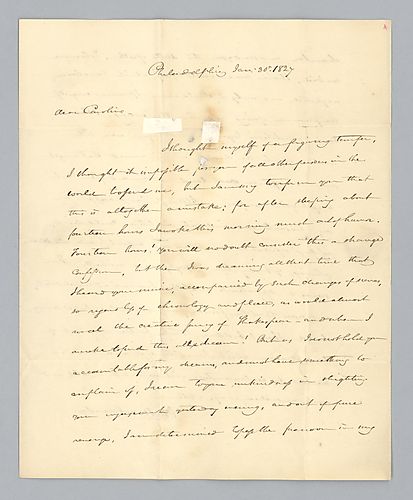 Philadelphia Jan: 30th. 1827
dear Caroline.
I thought myself of a forgiving temper,
I thought it impossible for you of all other persons in the
world to offend me, but I am sorry to inform you that
this is altogether a mistake; for after sleeping about
fourteen hours I awoke this morning much out of humor.
Fourteen hours! You will no doubt consider this a strange
confession, but then I was dreaming all that time that
I heard your voice, accompanied by such changes of scene,
so regardless of chronology and place, as would almost
the creative fancy of Shakespeare — and when I
awoke to find this all a dream! But as I cannot hold you
accountable for my dreams, and must have something to
complain of, I recur to your unkindness in slighting
your engagement yesterday evening, and out of pure
revenge, I am determined to pass the forenoon in my